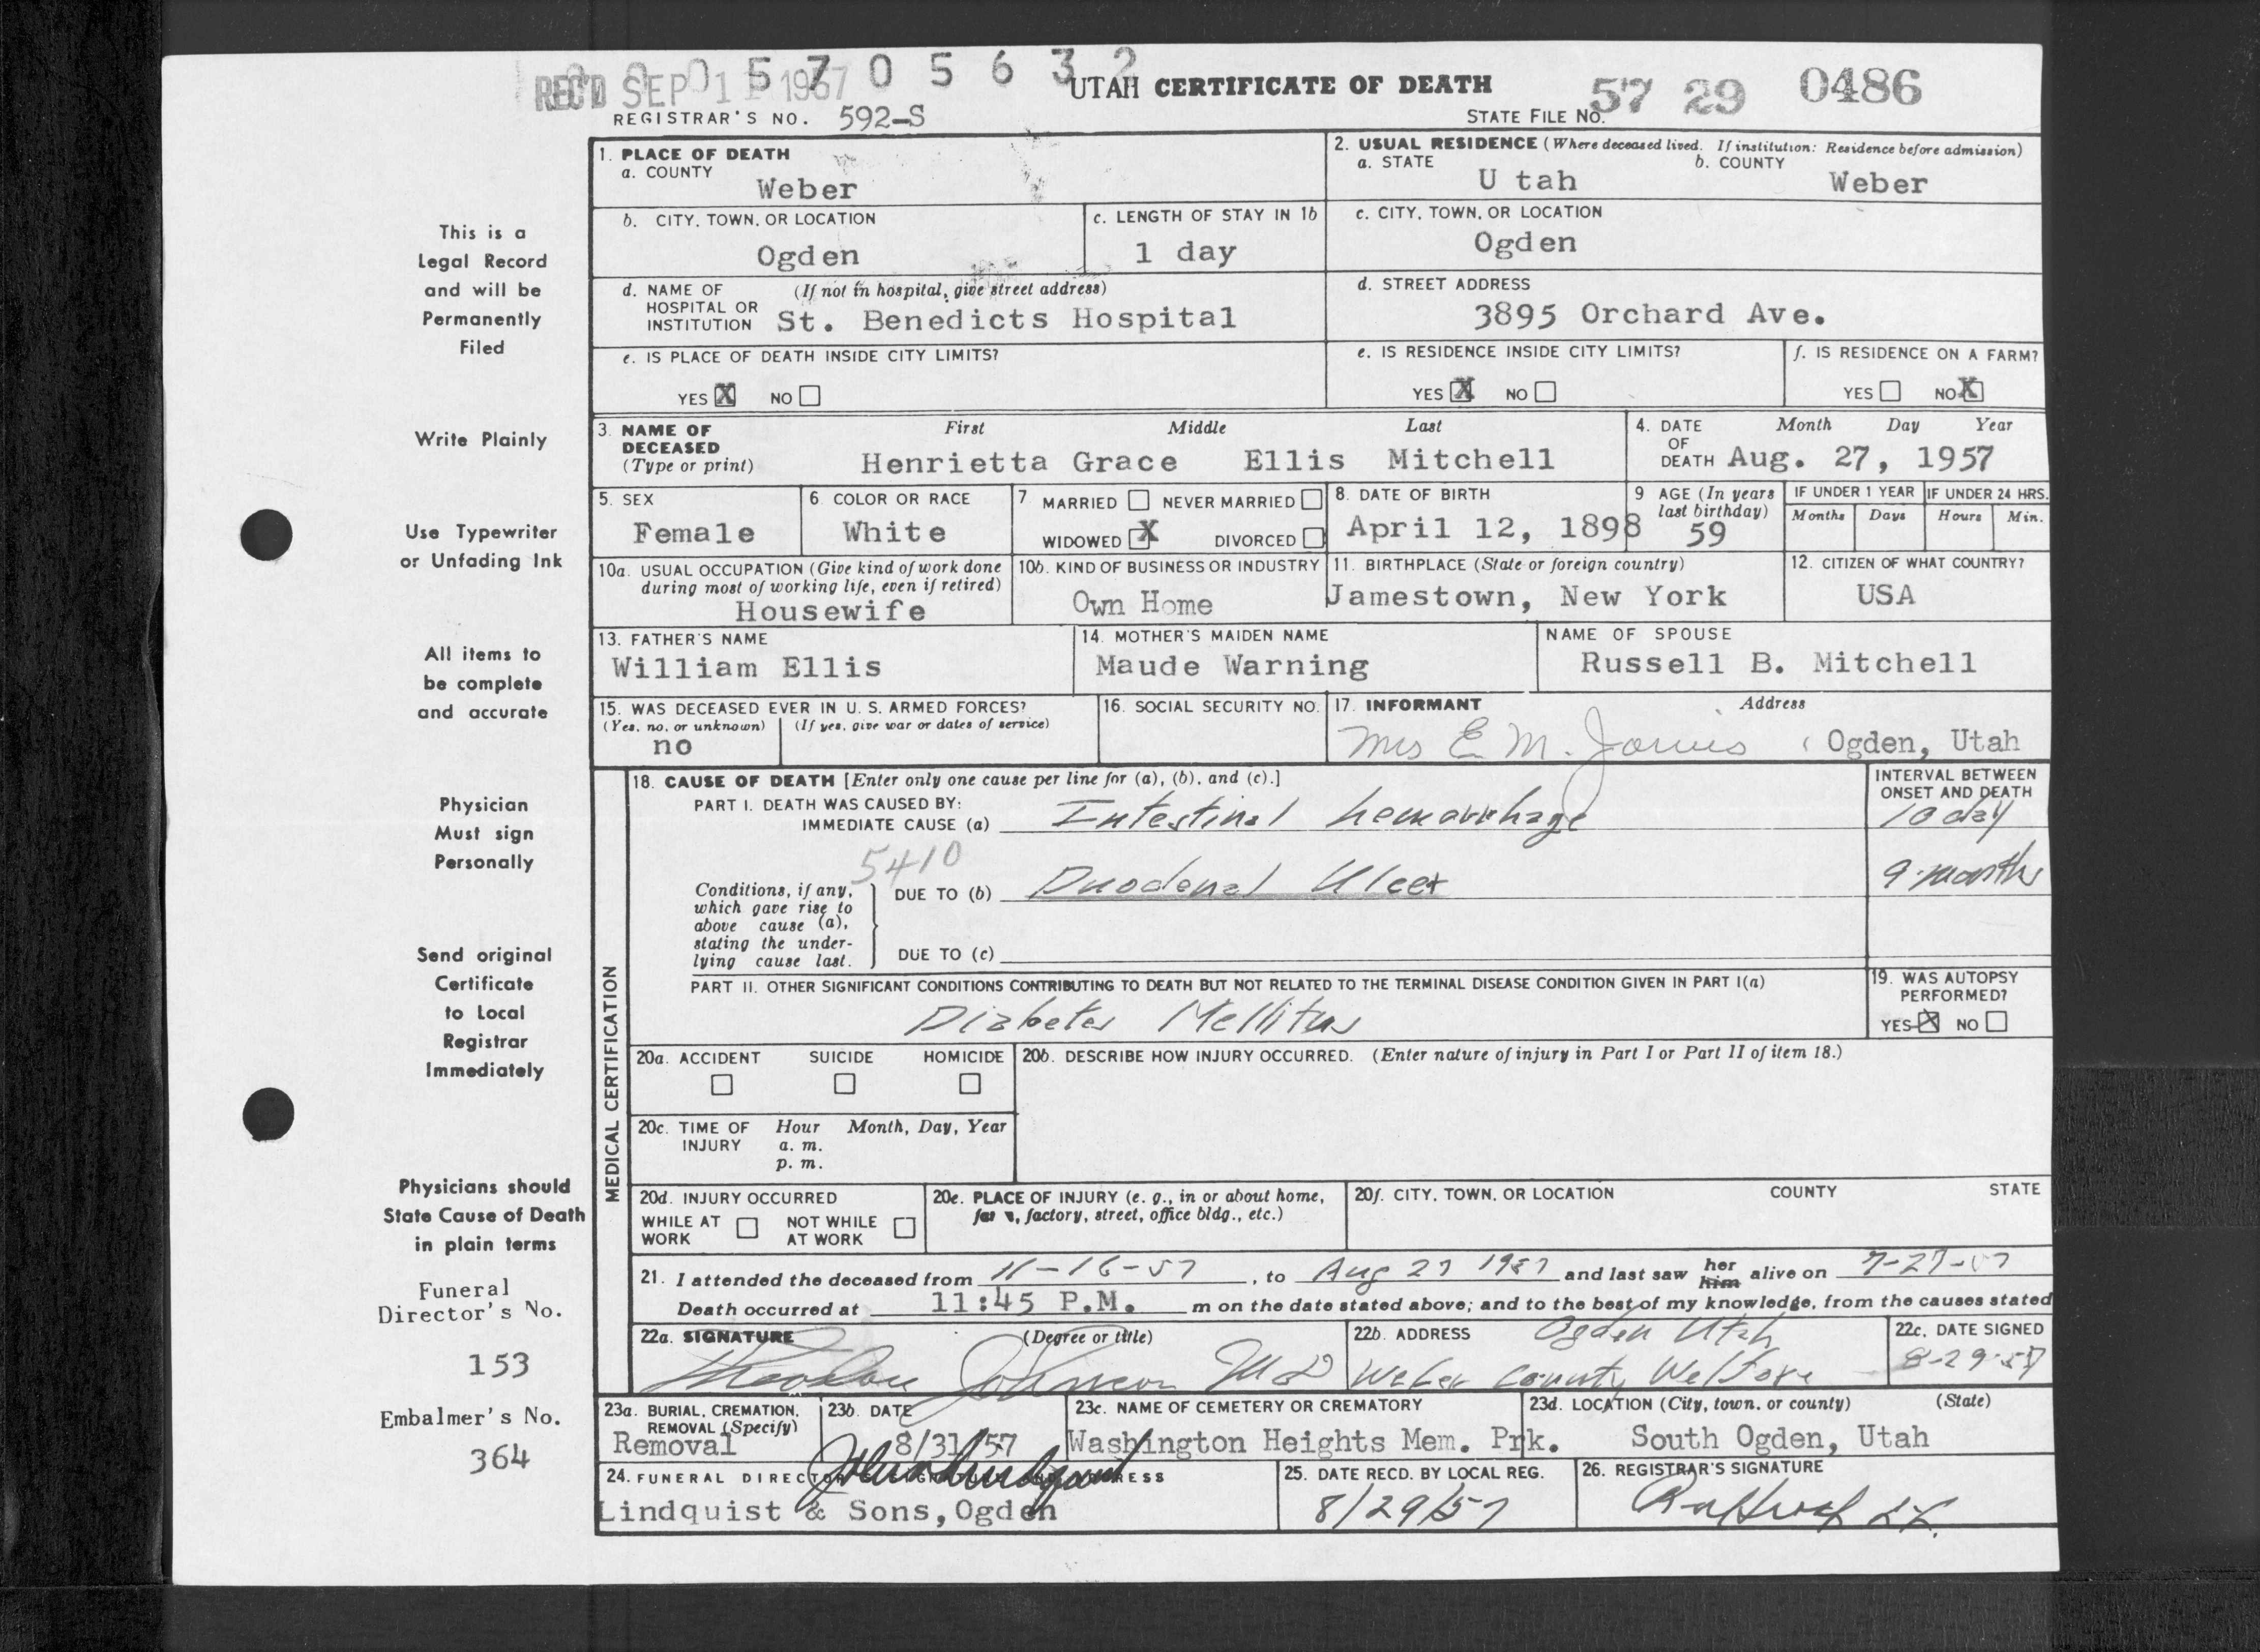 REC'D SEP 1 1957
0 5 7 0 5 6 3 2
UTAH CERTIFICATE OF DEATH
57 29 0486
REGISTRAR'S NO. 592-S
STATE FILE NO.
This is a
Legal Record
and will be
Permanently
Filed
Write Plainly
Use Typewriter
or Unfading Ink
All items to
be complete
and accurate
Physician
Must sign
Personally
Send original
Certificate
to Local
Registrar
Immediately
Physicians should
State Cause of Death
in plain terms
Funeral
Director's No.
153
Embalmer's No.
364
1. PLACE OF DEATH
a. COUNTY
Weber
2. USUAL RESIDENCE (Where deceased lived. If institution: Residence before admission)
a. STATE b. COUNTY
U tah Weber
b. CITY, TOWN, OR LOCATION
Ogden
c. LENGTH OF STAY IN 1b
1 day
c. CITY, TOWN, OR LOCATION
Ogden
d. NAME OF (If not in hospital, give street address)
HOSPITAL OR
INSTITUTION St. Benedicts Hospital
d. STREET ADDRESS
3895 Orchard Ave.
e. IS PLACE OF DEATH INSIDE CITY LIMITS?
YES X NO
e. IS RESIDENCE INSIDE CITY LIMITS?
YES X NO
f. IS RESIDENCE ON A FARM?
YES NO X
3. NAME OF First Middle Last
DECEASED
(Type or print) Henrietta Grace Ellis Mitchell
4. DATE Month Day Year
OF
DEATH Aug. 27, 1957
5. SEX
Female
6. COLOR OR RACE
White
7 MARRIED NEVER MARRIED
WIDOWED X DIVORCED
8. DATE OF BIRTH
April 12, 1898
9 AGE (In years
last birthday)
59
IF UNDER 1 YEAR IF UNDER 24 HRS.
Months Days Hours Min.
10a. USUAL OCCUPATION (Give kind of work done
during most of working life, even if retired)
Housewife
10b. KIND OF BUSINESS OR INDUSTRY
Own Home
11. BIRTHPLACE (State or foreign country)
Jamestown, New York
12. CITIZEN OF WHAT COUNTRY?
USA
13. FATHER'S NAME
William Ellis
14. MOTHER'S MAIDEN NAME
Maude Warning
NAME OF SPOUSE
Russell B. Mitchell
15. WAS DECEASED EVER IN U. S. ARMED FORCES?
(Yes, no, or unknown) (If yes, give war or dates of service)
no
16. SOCIAL SECURITY NO.
17. INFORMANT Address
Mrs E. M. Jarvis Ogden, Utah
MEDICAL CERTIFICATION
18. CAUSE OF DEATH [Enter only one cause per line for (a), (b), and (c).]
PART I. DEATH WAS CAUSED BY:
IMMEDIATE CAUSE (a) Intestinal hemorrhage
INTERVAL BETWEEN
ONSET AND DEATH
10 day
5410
Conditions, if any,
which gave rise to
above cause (a),
stating the under-
lying cause last.
DUE TO (b) Duodenal Ulcer
9 months
DUE TO (c)
PART II. OTHER SIGNIFICANT CONDITIONS CONTRIBUTING TO DEATH BUT NOT RELATED TO THE TERMINAL DISEASE CONDITION GIVEN IN PART I(a)
Diabetes Mellitus
19. WAS AUTOPSY
PERFORMED?
YES X NO
20a. ACCIDENT SUICIDE HOMICIDE
20b. DESCRIBE HOW INJURY OCCURRED. (Enter nature of injury in Part I or Part II of item 18.)
20c. TIME OF Hour Month, Day, Year
INJURY a. m.
p. m.
20d. INJURY OCCURRED
WHILE AT NOT WHILE
WORK AT WORK
20e. PLACE OF INJURY (e. g., in or about home,
factory, street, office bldg., etc.)
20f. CITY, TOWN, OR LOCATION COUNTY STATE
21. I attended the deceased from 11-16-57, to Aug 27 1957 and last saw her him alive on 7-27-57
Death occurred at 11:45 P.M. m on the date stated above; and to the best of my knowledge, from the causes stated
22a. SIGNATURE (Degree or title)
Johnson MD
22b. ADDRESS Ogden Utah
Weber County Welfare
22c. DATE SIGNED
8-29-57
23a. BURIAL, CREMATION,
REMOVAL (Specify)
Removal
23b. DATE
8/31/57
23c. NAME OF CEMETERY OR CREMATORY
Washington Heights Mem. Prk.
23d. LOCATION (City, town, or county) (State)
South Ogden, Utah
24. FUNERAL DIRECTOR'S SIGNATURE AND ADDRESS
Lindquist & Sons, Ogden
25. DATE RECD. BY LOCAL REG.
8/29/57
26. REGISTRAR'S SIGNATURE